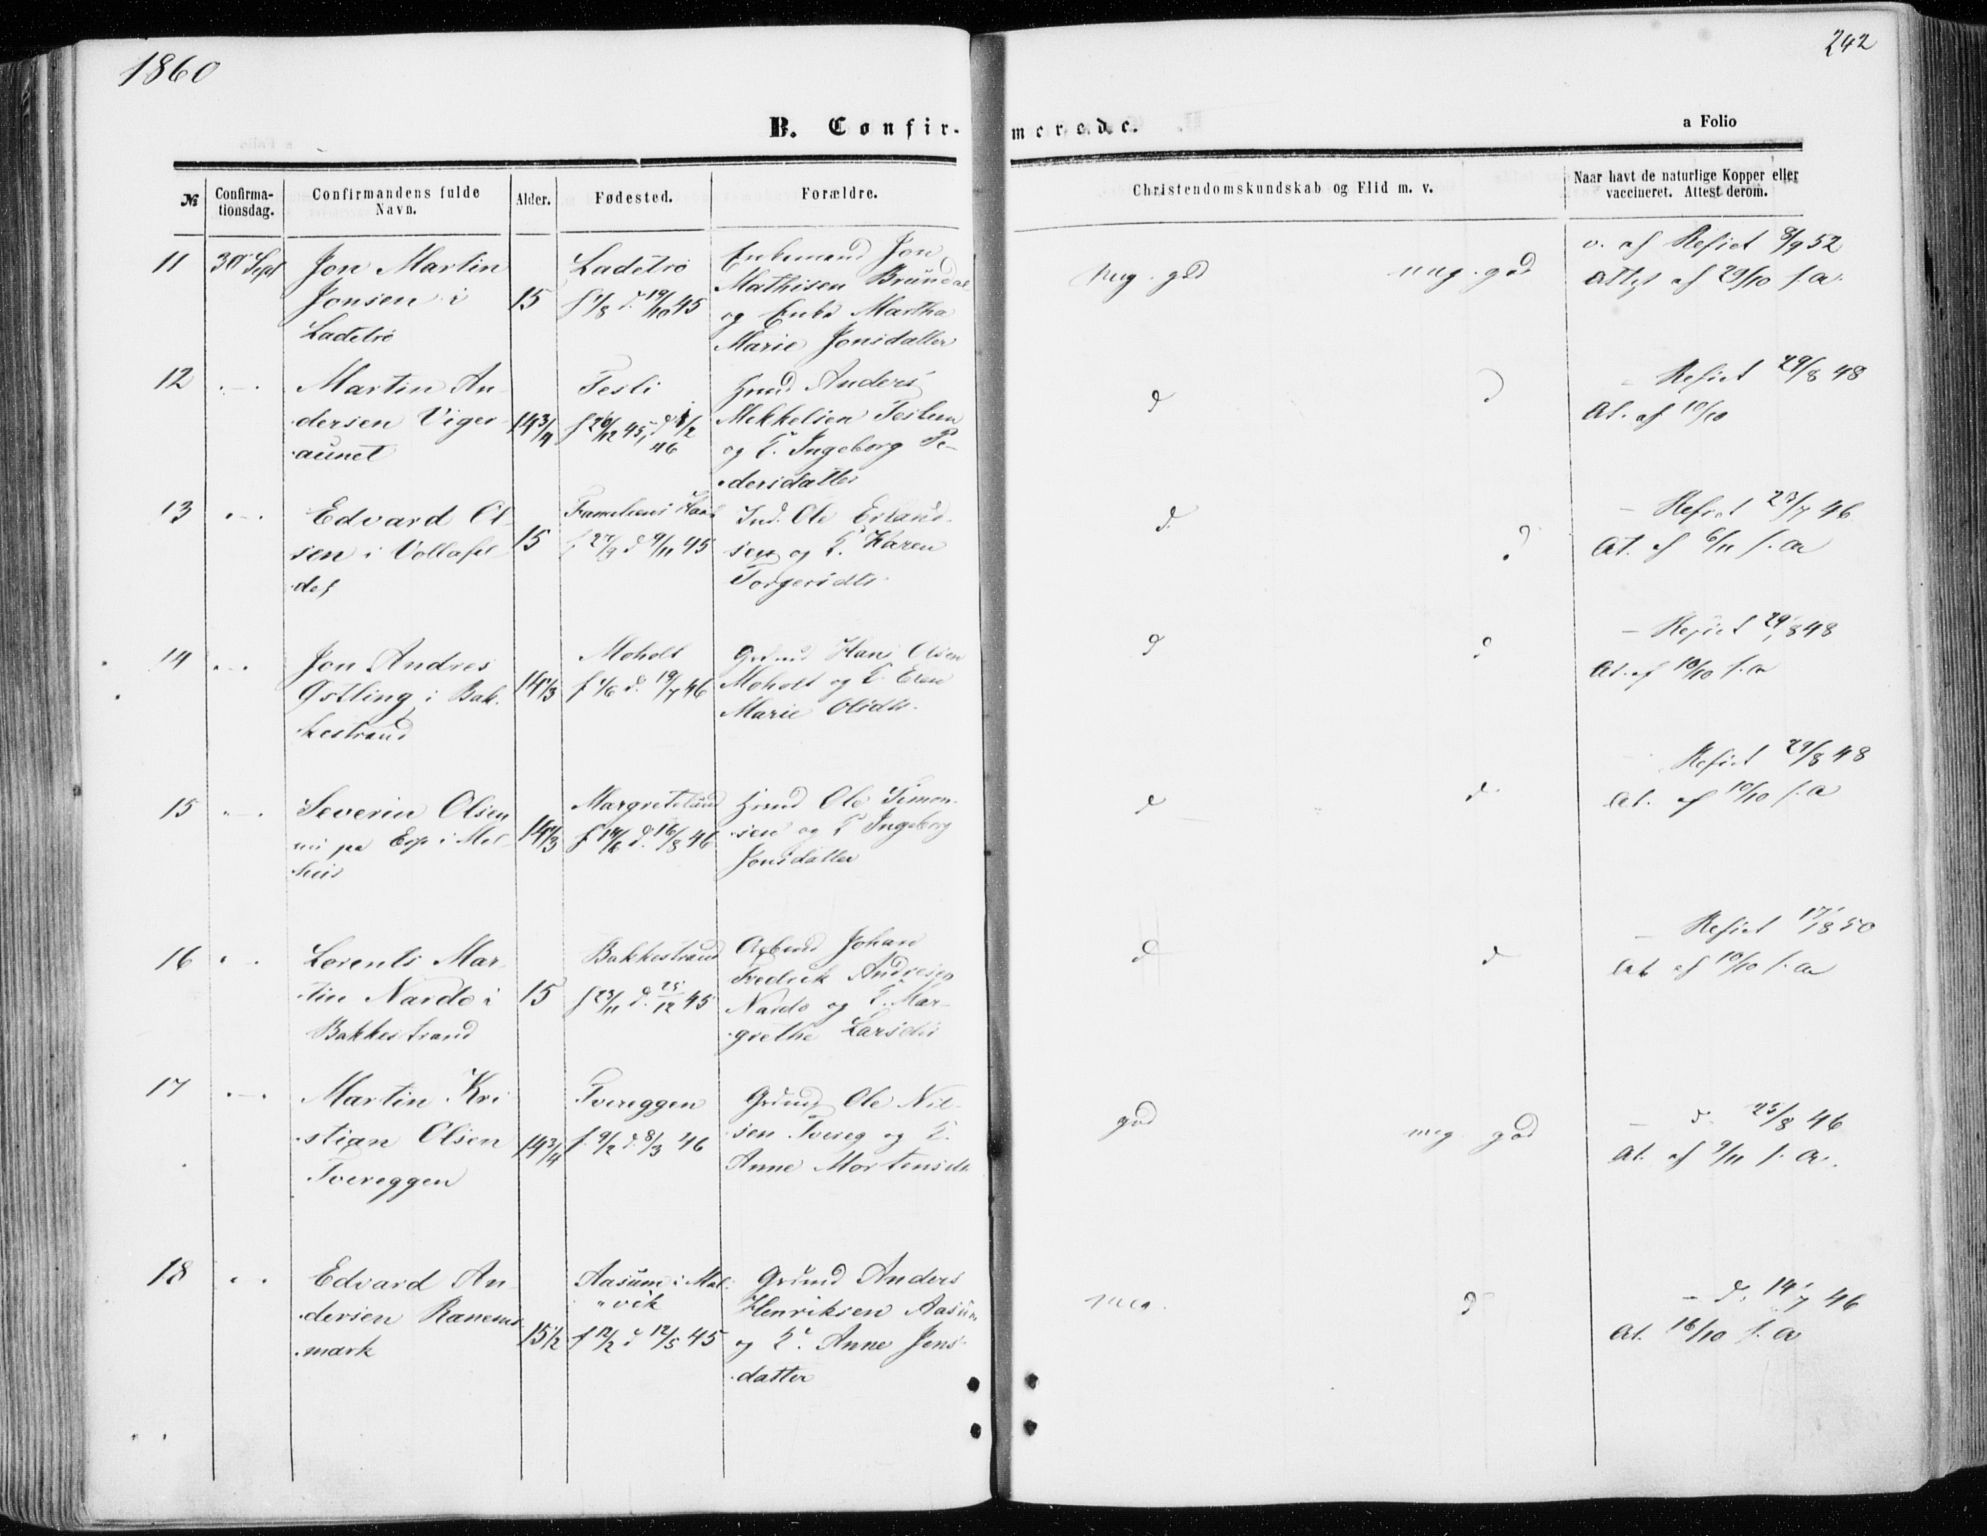 1860
242
B. Confir-
merede.
a Folio
№
Confirma-
tionsdag.
Confirmandens fulde
Navn.
Alder.
Fødested.
Forældre.
Christendomskundskab og Flid m. v.
Naar havt de naturlige Kopper eller
vaccineret. Attest derom.
11 30 Sept
Jon Martin
Jonsen i
Ladetrø
15
Ladetrø
f 1/8 d. 19/10 45
Enkemand Jon
Mathisen Brundal
og Enke Martha
Marie Jonsdatter
meg. god
meg. god
v. af Refset 8/9 52
af 29/10 f. a.
12
Martin An-
dersen Viger
aunet
14 3/4
Tesli
f 26/12 45, d 1/2
46
Anders
Mekkelsen
og Ingeborg Pe-
dersdatter
d
d
- Refset 29/8 48
At. af 10/10
13
Edvard Ol-
sen i
15
45
Ind. Ole
sen og Karen
Torgersdtr.
d.
d
- Refset 23/7 46
At. af 6/11 f. a
14
Jon Andres
Østling i Bak-
kestrand
14 1/3
Moholt
f 1/6 d. 19/7 46
Hans Olsen
Moholt og
Marie Olsdtr.
d
d
- Refset 29/8 48
At. af 10/10 f. a
15
Severin Olsen
nu paa i
14 1/3
Margretelund
d. 16/8 46
Ole Simon-
sen og Ingeborg
Jonsdatter
d
d.
Refset 29/8 48
At. af 10/10 f. a
16
Lorents Mar-
tin Nardo i
Bakkestrand
15
Bakkestrand
f 23/11 d. 25/12 45
Johan
Fredrik Andresen
Nardo og Mar-
grethe Larsdtr
d
d
- Refset 50
At. af 10/10 f. a
17
Martin Kri
stian Olsen
Tvereggen
14 3/4
Tvereggen
f. 9/2 d. 8/3 46
Ole Nil-
sen Tvereg og
Anne Mortensdtr
god
meg. god
- d. 25/8 46
At. af 9/11 f. a.
18
Edvard An-
dersen Ranems-
mark
15 1/2
Aasum i Mal-
vik
f 12/2 d 12/5 45
Anders
Henriksen Aasum
og Anne Jens-
datter
meg.
d
- d. 14/7 46
At. 16/10 f. a